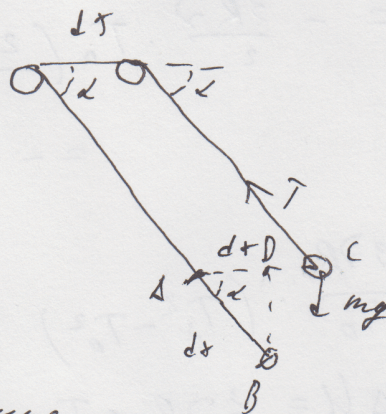 dx
α
α
T
dx D
C
A
α
mg
dx
B